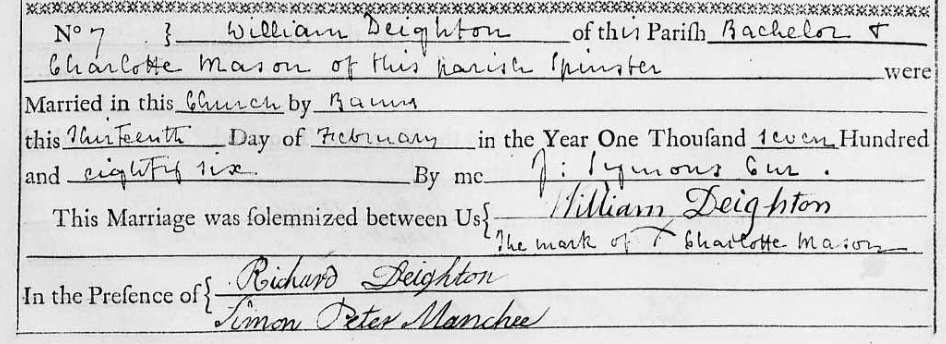 No 7 } William Deighton of this Pariſh Bachelor &
Charlotte Mason of this parish Spinster were
Married in this Church by Banns
this thirteenth Day of February in the Year One Thouſand seven Hundred
and eighty six By me J: Symons Cur .
This Marriage was ſolemnized between Us { William Deighton
The mark of X Charlotte Mason
In the Preſence of { Richard Deighton
Simon Peter Manchee